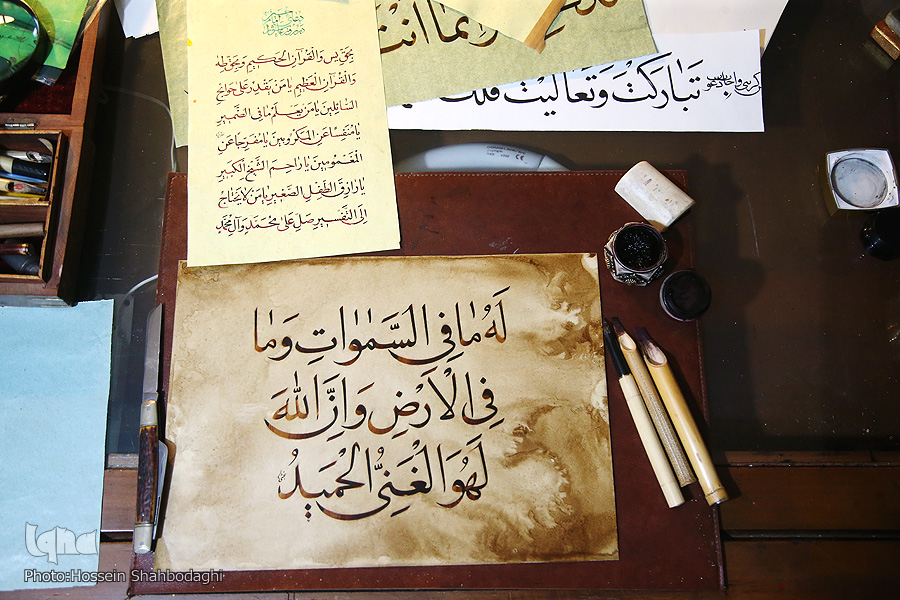 بِحَقِّ يس وَالْقُرْآنِ الْحَكِيمِ وَبِحَقِّ طه
وَالْقُرْآنِ الْعَظِيمِ يَا مَنْ يَقْدِرُ عَلَى حَوَائِجِ
السَّائِلِينَ يَا مَنْ يَعْلَمُ مَا فِي الضَّمِيرِ
يَا مُنَفِّسًا عَنِ الْمَكْرُوبِينَ يَا مُفَرِّجًا عَنِ
الْمَغْمُومِينَ يَا رَاحِمَ الشَّيْخِ الْكَبِيرِ
يَا رَازِقَ الطِّفْلِ الصَّغِيرِ يَا مَنْ لَا يَحْتَاجُ
إِلَى التَّفْسِيرِ صَلِّ عَلَى مُحَمَّدٍ وَآلِ مُحَمَّدٍ
تَبَارَكْتَ وَتَعَالَيْتَ فَلَكَ
لَهُ مَا فِي السَّمٰوَاتِ وَمَا
فِي الْاَرْضِ وَاِنَّ اللّٰهَ
لَهُوَ الْغَنِيُّ الْحَمِيدُ
Iqna
Photo:Hossein Shahbodaghi